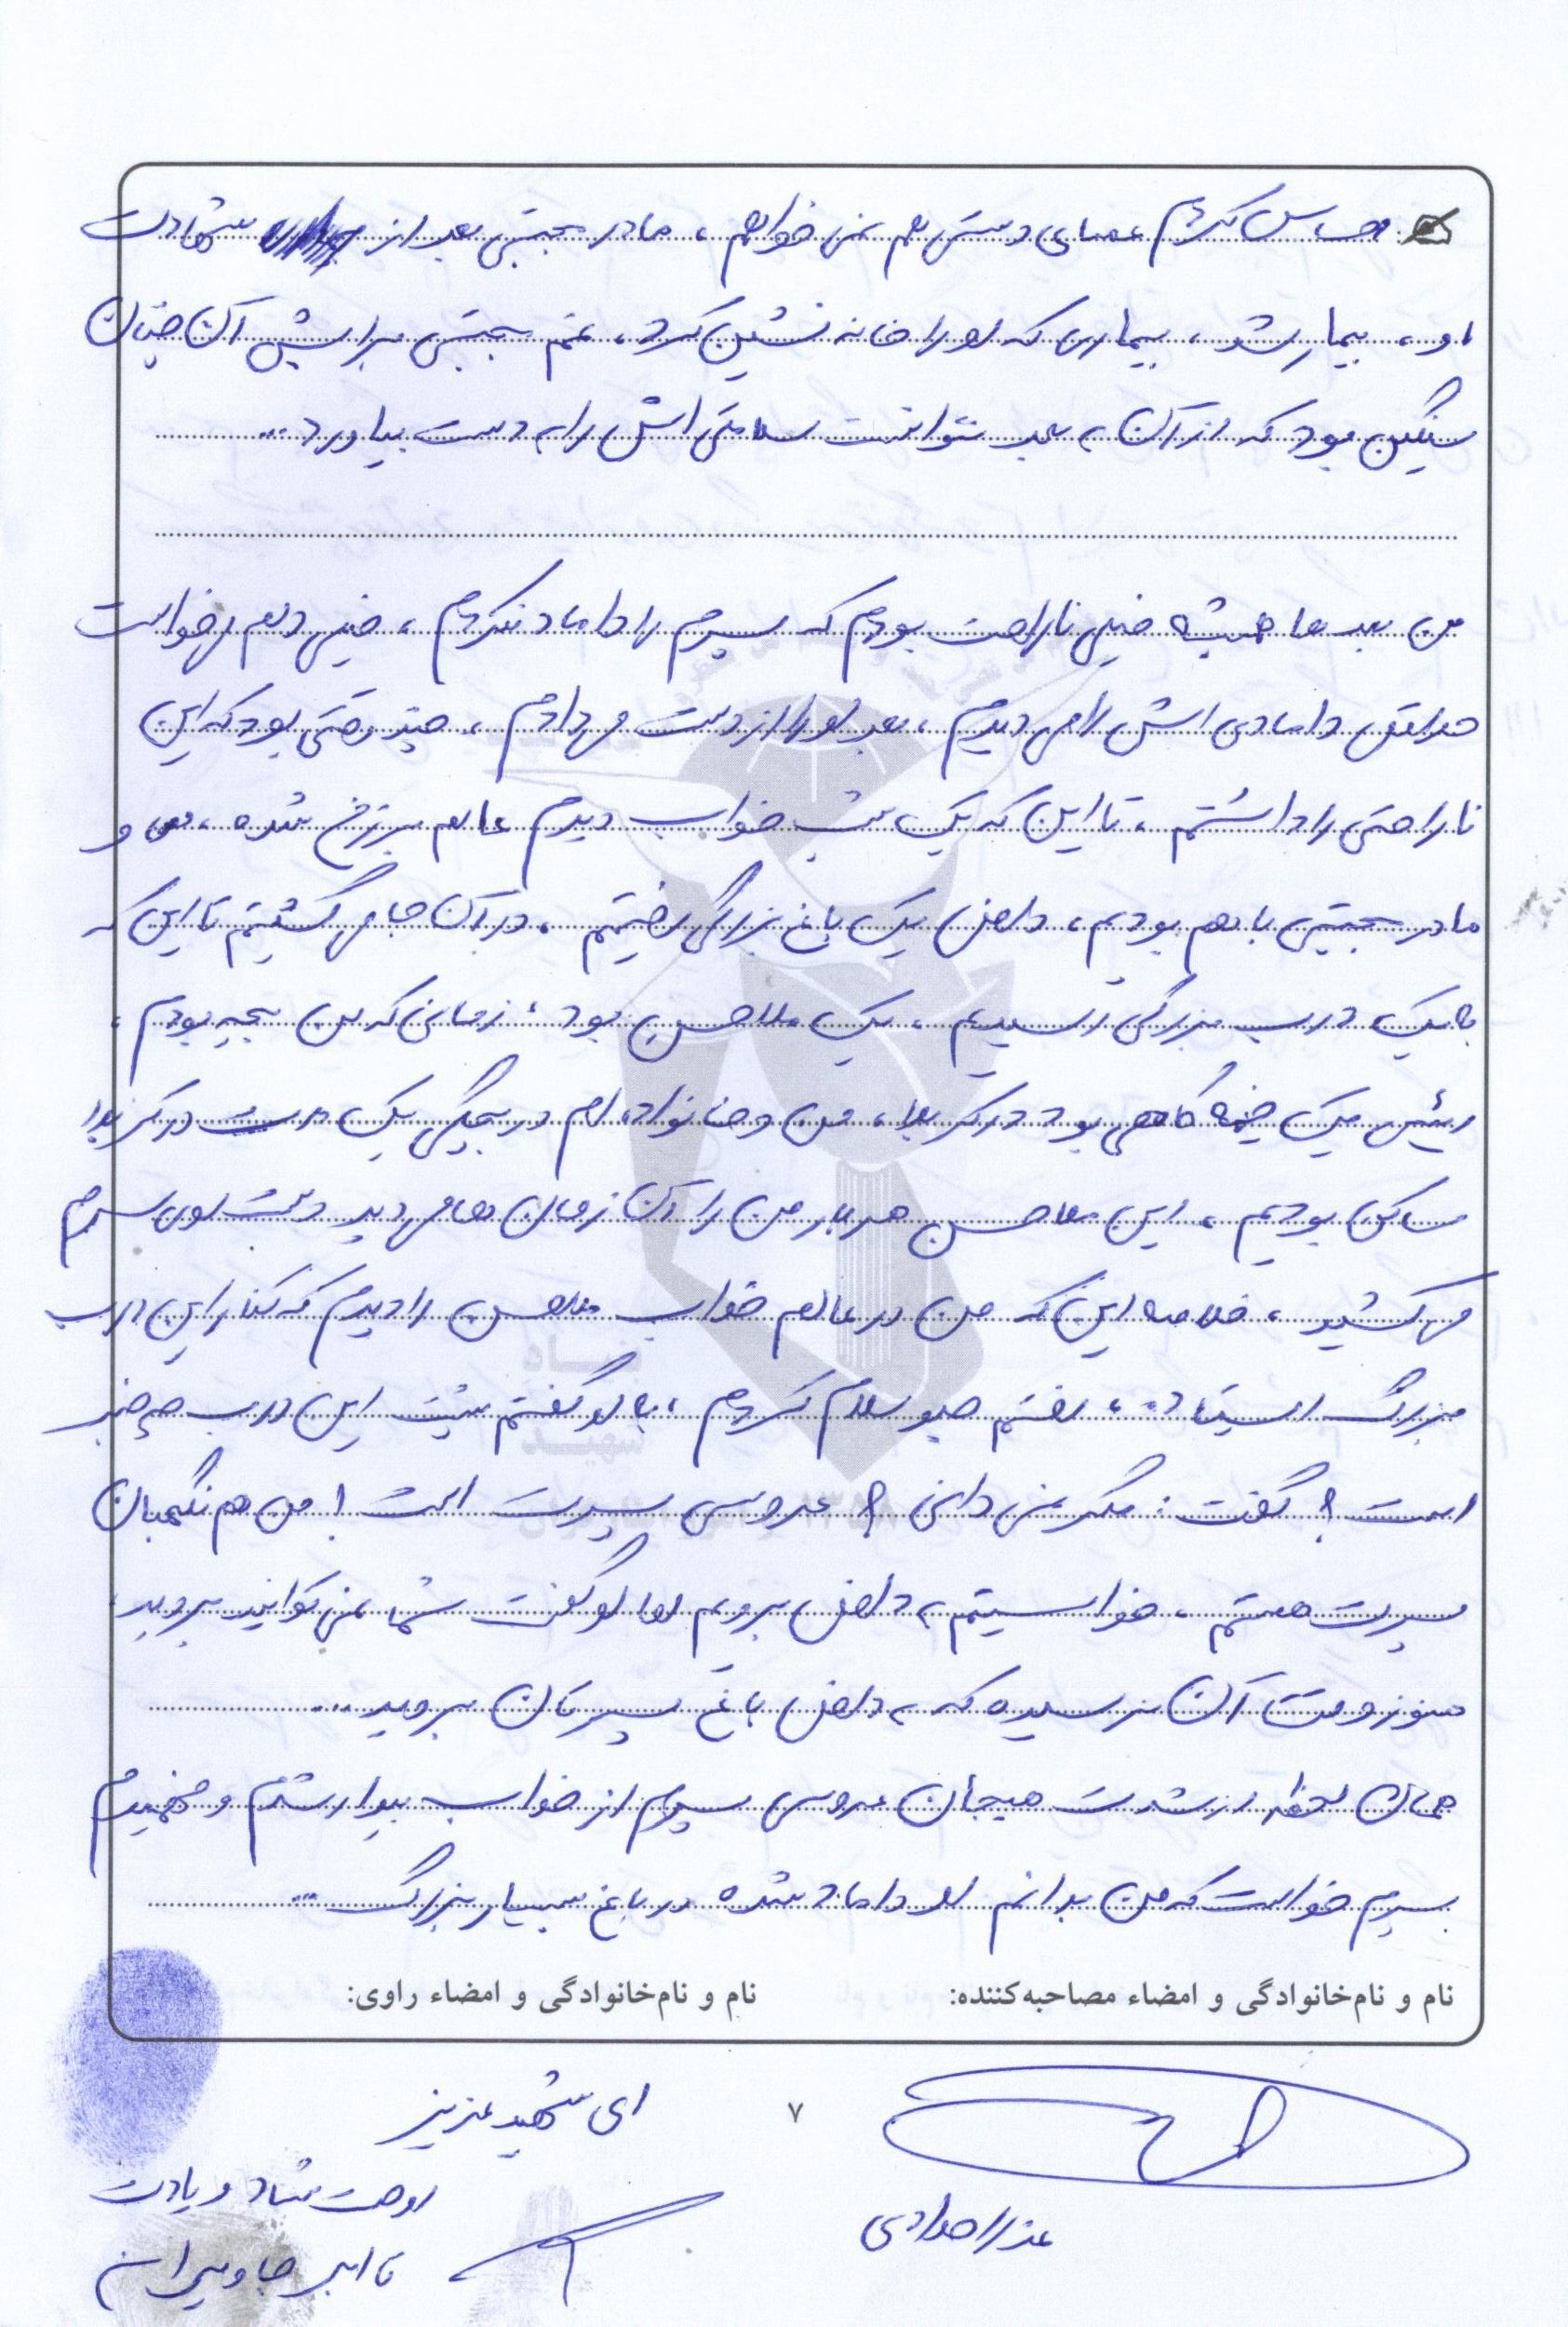 احساس کردم عصای دستی هم نمی خواهم، مادر مجتبی بعد از شهادت
او، بیمار شد، بیماری که او را خانه نشین کرد، غم مجتبی برایش آن چنان
سنگین بود که از آن به بعد نتوانست سلامتی اش را به دست بیاورد...
من بعدها همیشه خیلی ناراحت بودم که پسرم را داماد نکردم، خیلی دلم می خواست
حداقل دامادی اش را می دیدم، بعد او را از دست می دادم، چند وقتی بود که این
ناراحتی را داشتم، تا این که یک شب خواب دیدم عالم برزخ شده، من و
مادر مجتبی با هم بودیم، داخل یک باغ بزرگی رفتیم، در آن جا می گشتیم تا این که
به یک درب بزرگی رسیدیم، یک ملاحسن بود، زمانی که من بچه بودم،
رئیس یک خیمه گاهی بود در کربلا، من و خانواده ام در بچگی یک مدت در کربلا
ساکن بودیم، این ملاحسن هر بار من را آن زمان ها می دید دست روی سرم
می کشید، خلاصه این که من در عالم خواب ملاحسن را دیدم که کنار این درب
بزرگ ایستاده، رفتم جلو سلام کردم، به او گفتم پشت این درب چه خبر
است؟ گفت: مگر نمی دانی؟ عروسی پسرت است! من هم نگهبان
پسرت هستم، خواستیم به داخل برویم اما او گفت شما نمی توانید بروید،
هنوز وقت آن نرسیده که به داخل باغ پسرتان بروید...
همان لحظه از شدت هیجان عروسی پسرم از خواب بیدار شدم و فهمیدم
پسرم خواست که من بدانم او داماد شده در باغ بسیار بزرگ...
نام و نام‌خانوادگی و امضاء مصاحبه‌کننده:
نام و نام‌خانوادگی و امضاء راوی:
۷
ای شهید عزیز
روحت شاد و یادت
تا ابد جاویدان